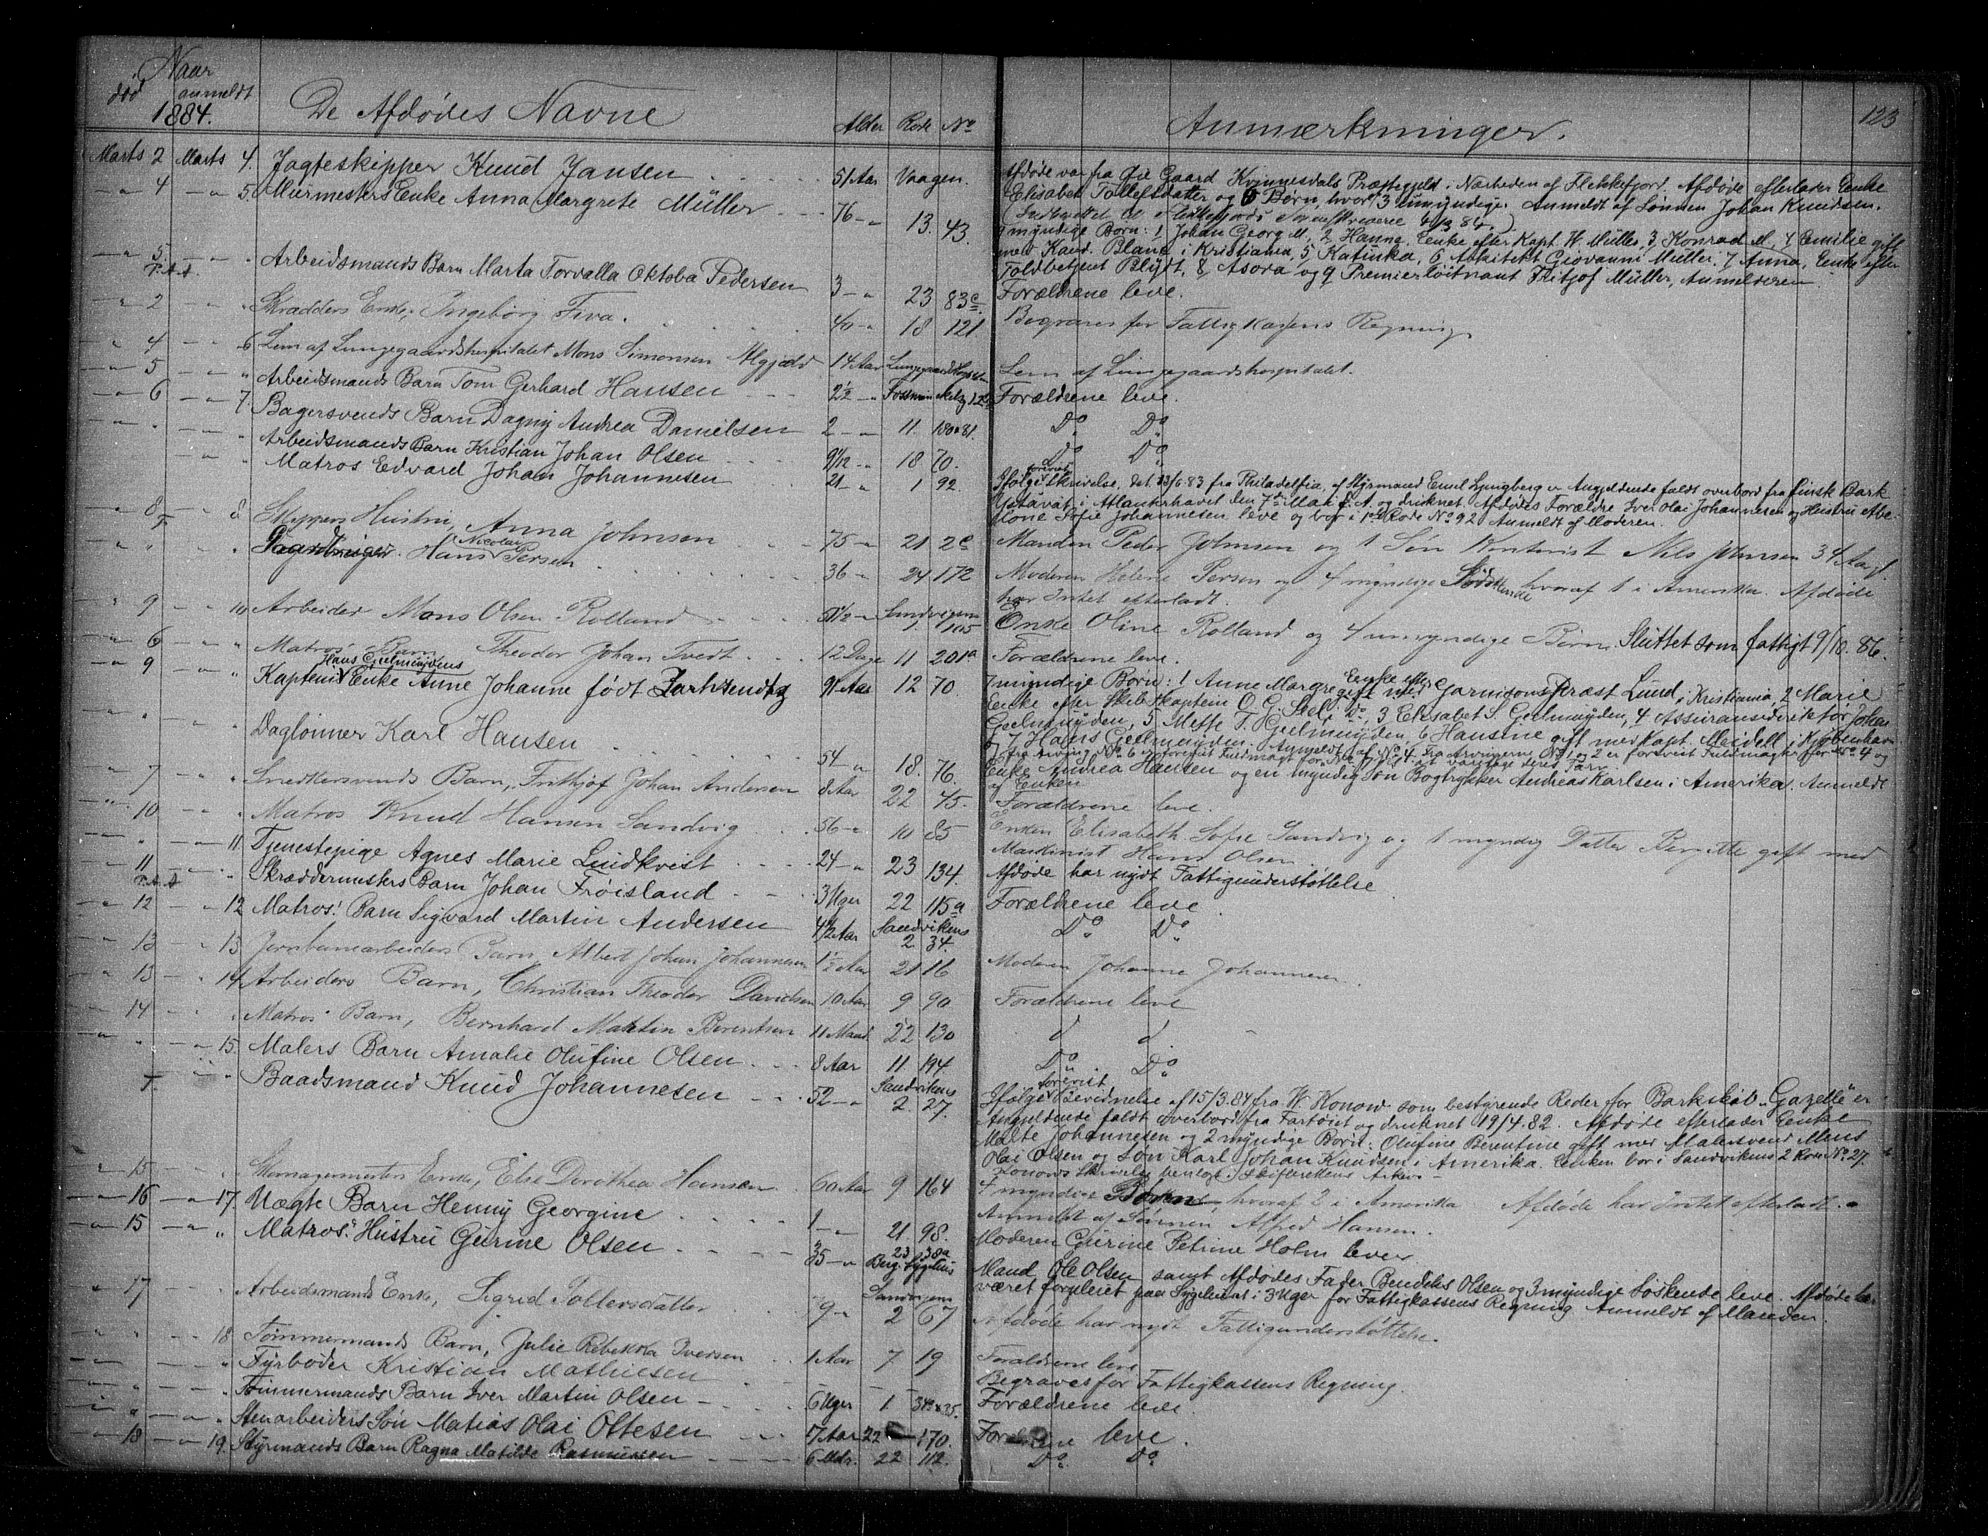 Naar
død anmeldt
1884.
De Afdødes Navne
Alder Rode No
Anmærkninger.
123
Marts 2 Marts 4. Jagteskipper Knud Jansen 51 Aar Vaagen.
Afdøde var fra Gaard Kvinnesdals Præstegjeld i Nærheden af Flekkefjord. Afdøde efterlader Enke
Elisabet Tollefsdatter og 6 Børn, hvoraf 3 umyndige. Anmeldt af Sønnen Johan Knudsen.
4 5. Murmesters Enke Anna Margrete Müller 76 13. 43.
9 myndige Børn: 1 Johan Georg M., 2 Hanna, Enke efter Kapt. W. Müller, 3 Konrad M., 4 Emilie gift
med Kand. Blanc i Kristiania, 5 Katinka, 6 Arkitekt Giovanni Müller, 7 Anna, Enke efter
Toldbetjent Blydt, 8 Asora og 9 Premierløitnant Fritjof Müller, Anmelderen.
5. Arbeidsmands Barn Marta Torvalla Oktoba Pedersen 3 23 83c Forældrene leve.
2 Skrædders Enke, Ingebørg Fiva. 40 18 121 Begraves for Fattigkassens Regning
4 6 Lem af Lungegaardshospitalet Mons Simonsen 14 Aar Lungegaardshosp. Lem af Lungegaardshospitalet.
5 Arbeidsmands Barn Tom Gerhard Hansen 2½ Forældrene leve.
6 7. Bagersvends Barn Dagny Andrea Danielsen 2 11. 180 & 81. Do Do
Arbeidsmands Barn Kristian Johan Olsen 9/12 18 70. Do Do
Matros Edvard Johan Johannesen 21 1 92.
Ifølge forevist Skrivelse, dat. 23/6 83 fra Philadelfia, af Styrmand Emil Ljungberg er Angjeldende faldt overbord fra finsk Bark
i Atlanterhavet den 7de Mai f. A. og druknet. Afdødes Forældre Iver Olai Johannesen og Hustru
Sofie Johannesen leve og bor i 1ste Rode No 92. Anmeldt af Moderen.
8 8. Skippers Hustru, Anna Johnson 75 21 2c Manden Peder Johnson og 1 Søn Kontorist Nils Johnson 34 Aar gl.
Hans Nicolay Persen 36 24 172 Moderen Helene Persen og 4 myndige Sødskende hvoraf 1 i Amerika. Afdøde
har Intet efterladt.
9 10 Arbeider Mons Olsen Rolland 51½ Sandvigen 1. 105 Enke Oline Rolland og 4 umyndige Børn. Sluttet som fattigt 9/10. 86.
6 Matros' Barn Theodor Johan Tvedt 12 Dage 11 201a Forældrene leve.
9 Kaptein Hans Geelmuydens Enke Anne Johanne født Zachsendtz 91 Aar 12 70.
7 myndige Børn: 1 Anne Margrete Enke efter Garnisonspræst Lund i Kristiania, 2 Marie
Enke efter Skibskaptein O. G. Do, 3 Elisabet S. Geelmuyden, 4 Assuransedirektør Johan
Geelmuyden, 5 Mette T. Geelmuyden, 6 Hansine gift med Kapt. Meidell i Kjøbenhavn
og 7 Hans Geelmuyden. Anmeldt af No 4.
Daglønner Karl Hansen 54 18. 76. Enke Andrea Hansen og en myndig Søn Bogtrykker Andreas Karlsen i Amerika. Anmeldt
af Enken
7 Snedkersvends Barn, Frithjof Johan Andersen 8 Aar 22 45. Forældrene leve.
10 Matros Knud Hansen Sandvig 56 10 85 Enken Elisabeth Sofie Sandvig og 1 myndig Datter Birgitte gift med
Maskinist Hans Olsen
11 Tjenestepige Agnes Marie Lindkvist 24 23 134. Afdøde har nydt Fattigunderstøttelse
11 Skræddermesters Barn Johan Frøisland 3 Uger 22 115a Forældrene leve.
12 12 Matros' Barn Sigvard Martin Andersen 4½ Aar Sandvikens 2. 34. Do Do
13 13 Jernbanearbeiders Barn, Albert Johan Johannesen 1½ Aar 21 16 Moderen Johanne Johannesen
13 14 Arbeiders Barn, Christian Theodor Davidsen 10 Aar 9 90 Forældrene leve
14 Matros' Barn, Bernhard Martin Berentsen 11 Maad 22 130 d d
15. Malers Barn Amalie Olufine Olsen 8 Aar 11 194 Do Do
Baadsmand Knud Johannesen 52 Sandvikens 2. 27.
Ifølge forevist Bevidnelse af 15/3. 84 fra W. Konow som bestyrende Reder for Barkskib "Gazelle" er
Angjeldende faldt overbord fra Fartøiet og druknet 19/4. 82. Afdøde efterlader Enke
Malte Johannesen og 2 myndige Børn: Olufine Berentine gift med Malersvend Mons
Olai Olsen og Søn Karl Johan Knudsen i Amerika. Enken bor i Sandvikens 2 Rode No 27.
Konows Skrivelse henlagt i Skifterettens Arkiv.
15 Skomagermesters Enke, Else Dorothea Hansen 60 Aar 9 164 4 myndige Børn hvoraf 2 i Amerika. Afdøde har Intet efterladt.
Anmeldt af Sønnen Alfred Hansen.
16 17. Uægte Barn Henny Georgine 1 21. 98. Moderen Gurine Petrine Holm lever
15 Matros' Hustru Gurine Olsen 35 23 38a Berg. Sygehus
Mand Ole Olsen samt Afdødes Fader Bendeks Olsen og 3 myndige Søskende leve. Afdøde har
været forpleiet paa Sygehuset i 3 Uger for Fattigkassens Regning. Anmeldt af Manden.
17 Arbeidermands Enke, Sigrid Tollefsdatter 79 Sandvigens 2 67 Afdøde har nydt Fattigunderstøttelse.
18. Tømmermands Barn, Julie Rebekka Iversen 1 Aar 7 19 Forældrene leve
Fyrbøder Kristian Mathiesen Begraves for Fattigkassens Regning.
Tømmermands Barn Iver Martin Olsen 6 Uger 1 Forældrene leve.
Stenarbeiders Søn Matias Olai Ottesen 7 Aar 22 170. Forældrene leve.
18 19. Styrmands Barn Ragna Matilde Rasmussen 6 Mdr. 22 112. Do Do